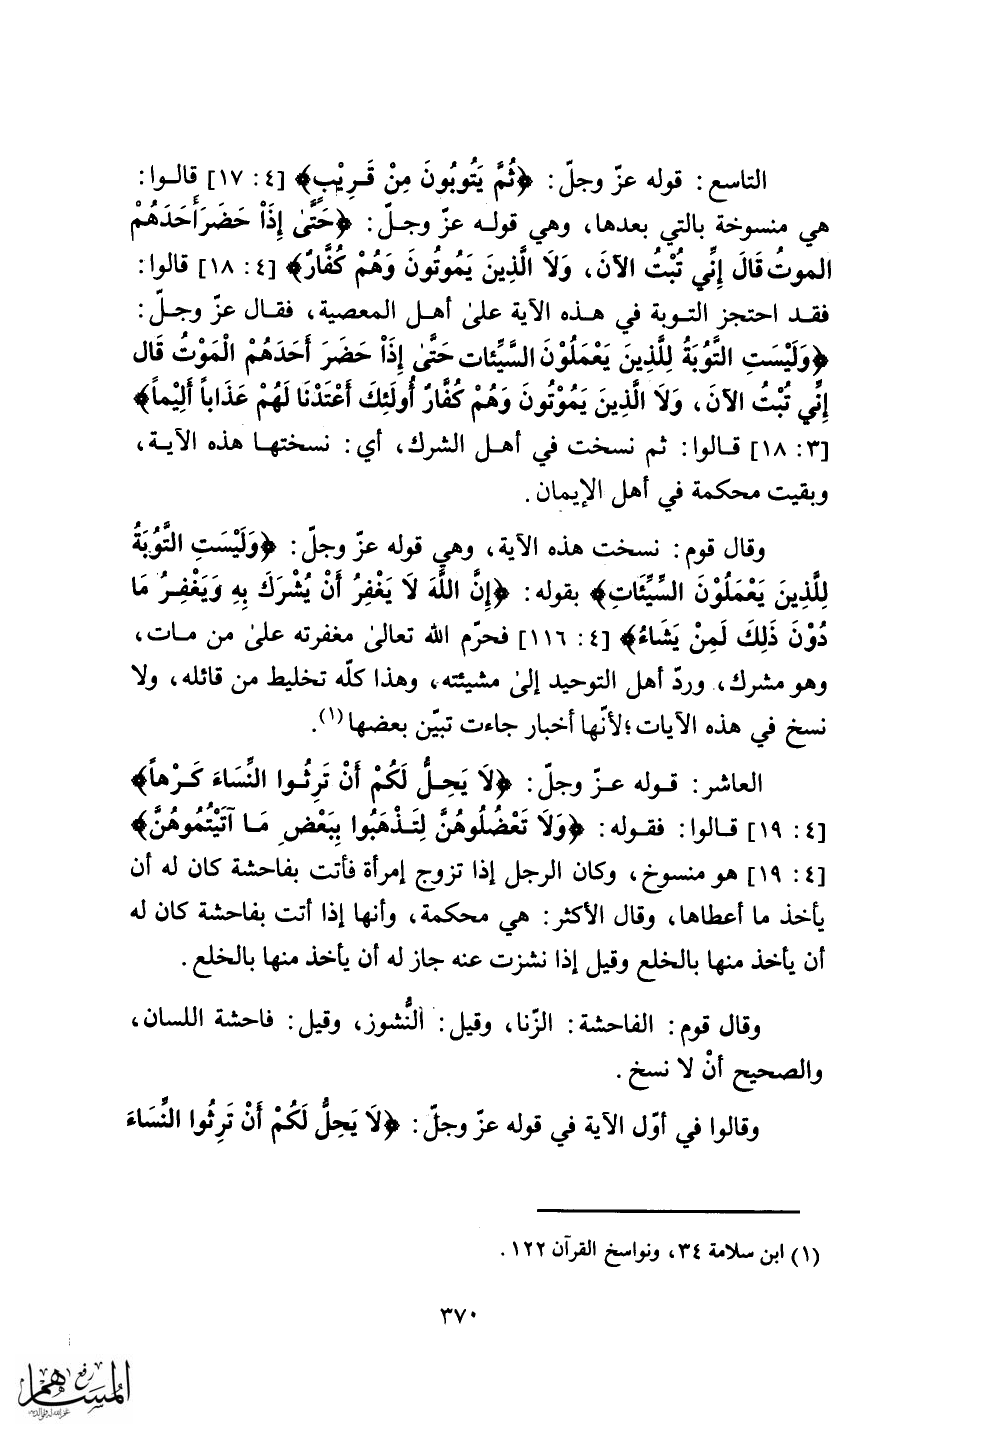 التاسع: قوله عزّ وجلّ: ﴿ثُمَّ يَتُوبُونَ مِنْ قَـرِيْبٍ﴾ [٤: ١٧] قالـوا:
هي منسوخة بالتي بعدها، وهي قولـه عزّ وجـلّ: ﴿حَتَّىٰ إِذَاْ حَضَرَ أَحَدَهُمْ
الموتُ قَالَ إِنِّي تُبْتُ الآنَ، وَلَا الَّذِينَ يَمُوتُونَ وَهُمْ كُفَّارٌ﴾ [٤: ١٨] قالوا:
فقـد احتجز التـوبة في هـذه الآية علىٰ أهـل المعصية، فقـال عزّ وجـلّ:
﴿وَلَيْسَتِ التَّوْبَةُ لِلَّذِينَ يَعْمَلُوْنَ السَّيِّئات حَتَّىٰ إِذَاْ حَضَرَ أَحَدَهُمْ الْمَوْتُ قَال
إِنِّي تُبْتُ الآنَ، وَلَا الَّذِينَ يَمُوْتُونَ وَهُمْ كُفَّارٌ أُولَئِكَ أَعْتَدْنَا لَهُمْ عَذَاباً أَلِيْماً﴾
[٣: ١٨] قـالوا: ثم نسخت في أهـل الشرك، أي: نسختهـا هذه الآيـة،
وبقيت محكمة في أهل الإيمان.
وقال قوم: نسخت هذه الآية، وهي قوله عزّ وجلّ: ﴿وَلَيْسَتِ التَّوْبَةُ
لِلَّذِينَ يَعْمَلُوْنَ السِّيِّئَاتِ﴾ بقوله: ﴿إِنَّ اللَّهَ لَا يَغْفِرُ أَنْ يُشْرَكَ بِهِ وَيَغْفِـرُ مَا
دُوْنَ ذَلِكَ لَمِنْ يَشَاءُ﴾ [٤: ١١٦] فحرّم الله تعالىٰ مغفرته علىٰ من مـات،
وهو مشرك، وردّ أهل التوحيد إلىٰ مشيئته، وهذا كلّه تخليط من قائله، ولا
نسخ في هذه الآيات؛ لأنّها أخبار جاءت تبيّن بعضها(١).
العاشر: قـوله عـزّ وجلّ: ﴿لَا يَحِـلُّ لَكُمْ أَنْ تَرِثُـوا النِّسَاءَ كَـرْهاً﴾
[٤: ١٩] قـالوا: فقـوله: ﴿وَلَا تَعْضُلُوهُنَّ لِتَـذْهَبُوا بِبَعْضِ مَـا آتَيْتُمُوهُنَّ﴾
[٤: ١٩] هو منسوخ، وكان الرجل إذا تزوج إمرأة فأتت بفاحشة كان له أن
يأخذ ما أعطاها، وقال الأكثر: هي محكمة، وأنها إذا أتت بفاحشة كان له
أن يأخذ منها بالخلع وقيل إذا نشزت عنه جاز له أن يأخذ منها بالخلع.
وقال قوم: الفاحشة: الزّنا، وقيل: النُّشوز، وقيل: فاحشة اللسان،
والصحيح أنْ لا نسخ.
وقالوا في أوّل الآية في قوله عزّ وجلّ: ﴿لَا يَحِلُّ لَكُمْ أَنْ تَرِثُوا النِّسَاءَ
(١) ابن سلامة ٣٤، ونواسخ القرآن ١٢٢.
٣٧٠
رفع
المساهم
غفر الله له ولوالديه